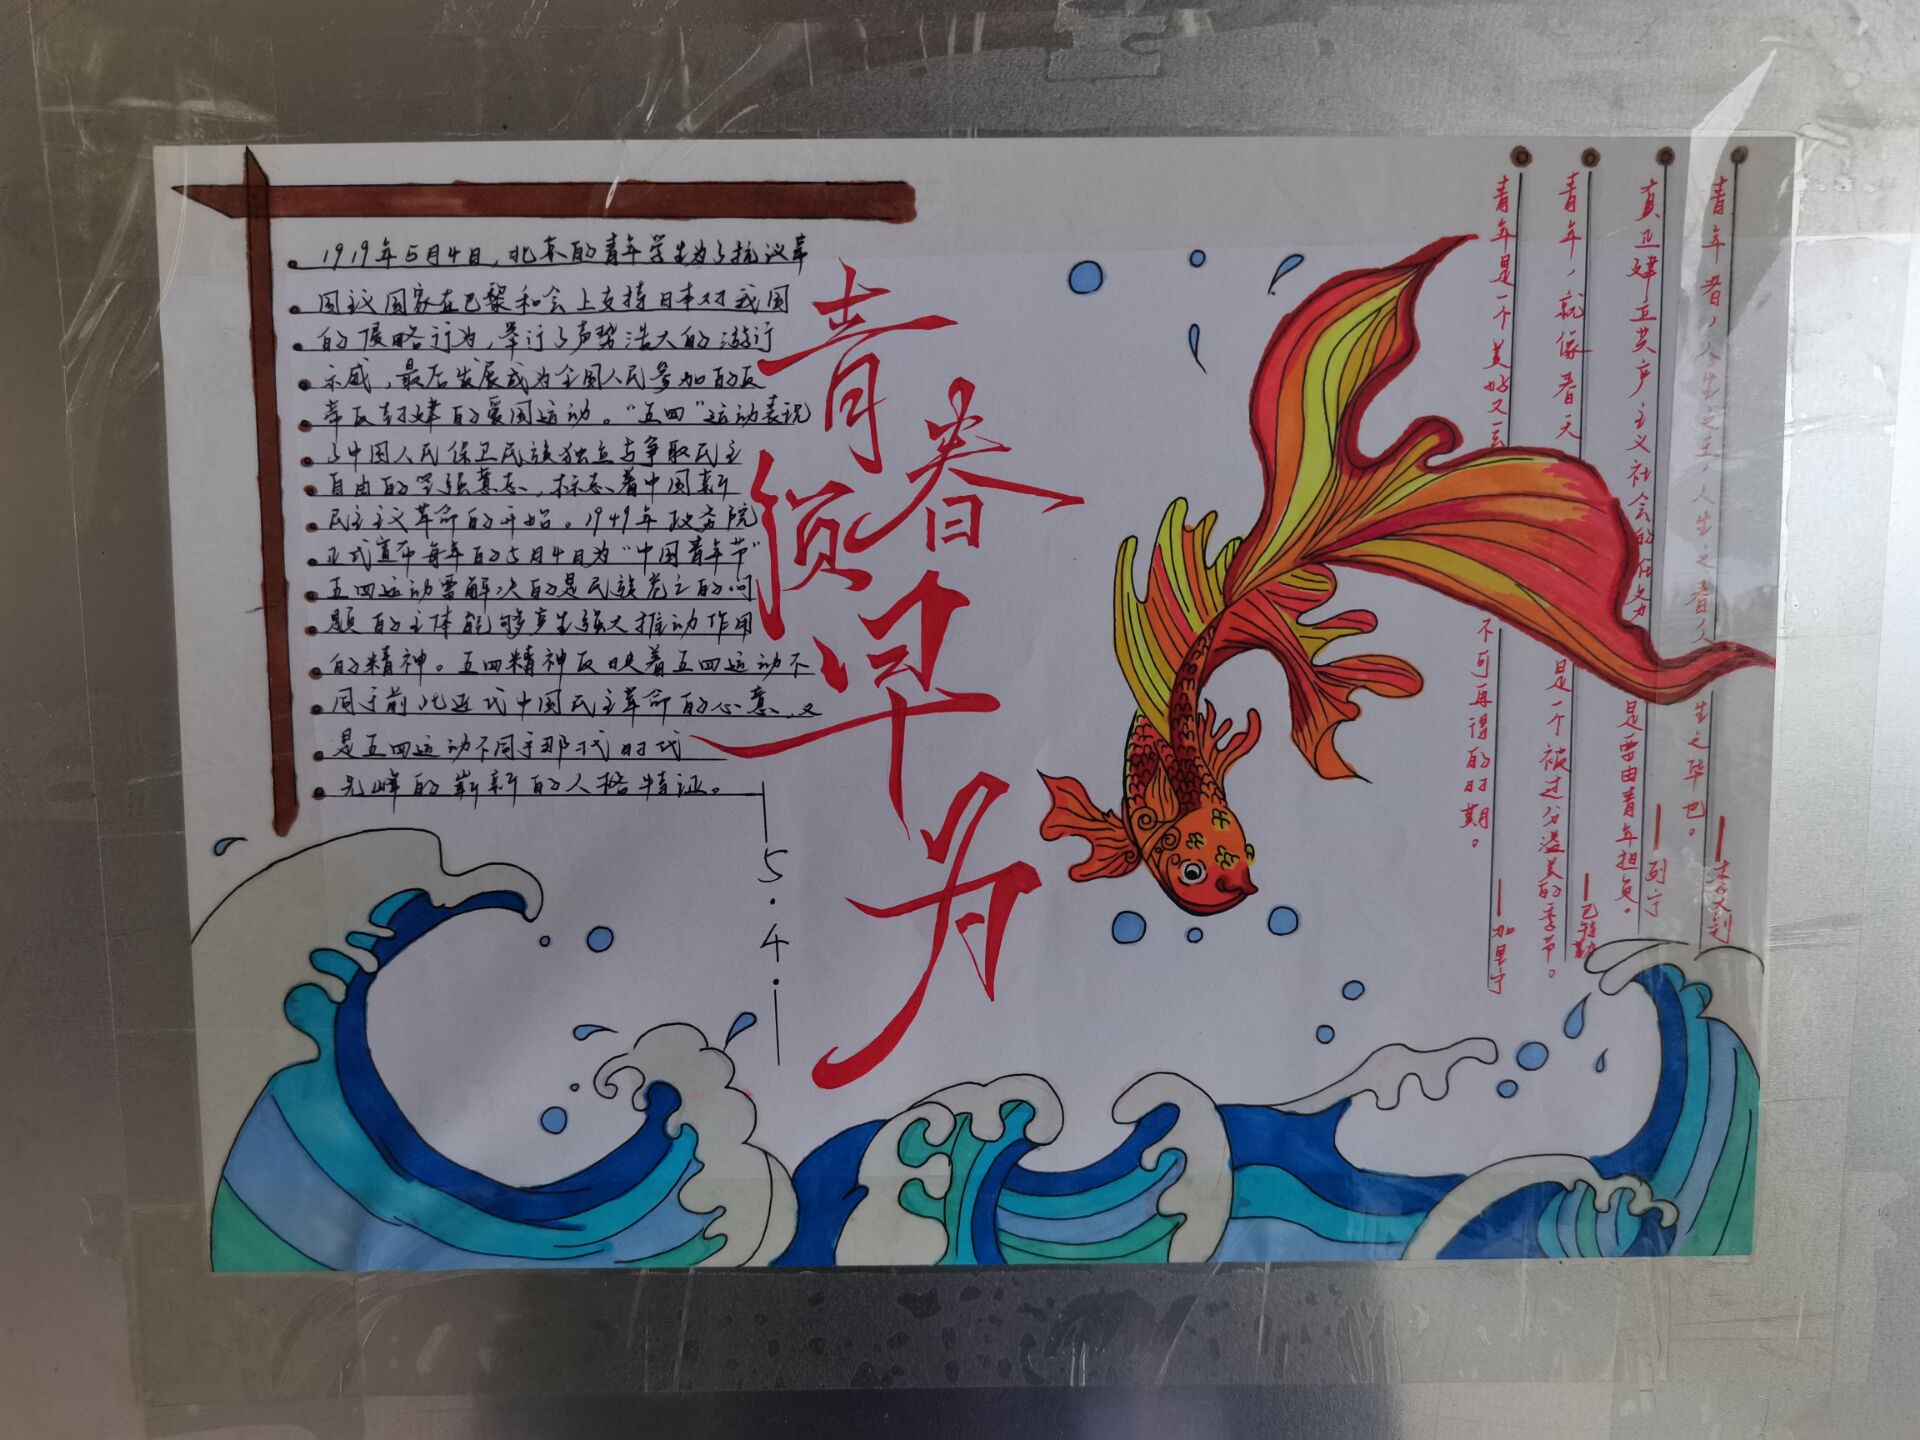 1919年5月4日,北京的青年学生为了抗议帝
国主义国家在巴黎和会上支持日本对我国
的侵略行为,举行了声势浩大的游行
示威,最后发展成为全国人民参加的反
帝反封建的爱国运动。“五四”运动表现
了中国人民保卫民族独立与争取民主
自由的坚强意志,标志着中国新
民主主义革命的开始。1949年政务院
正式宣布每年的5月4日为“中国青年节”
五四运动需解决的是民族危亡的问
题的主体能够产生强大推动作用
的精神。五四精神反映着五四运动不
同于前此近代中国民主革命的心意,又
是五四运动不同于那代时代
先峰的崭新的人格特证。
5.4.
青春
须早为
青年者,人生之王,人生之春,人生之华也。
—李大钊
真正建立共产主义社会的任务是要由青年担负。
—列宁
青年,就像春天是一个被过分溢美的季节。
—巴特勒
青年是一个美好又一去不可再得的时期。
—加里宁